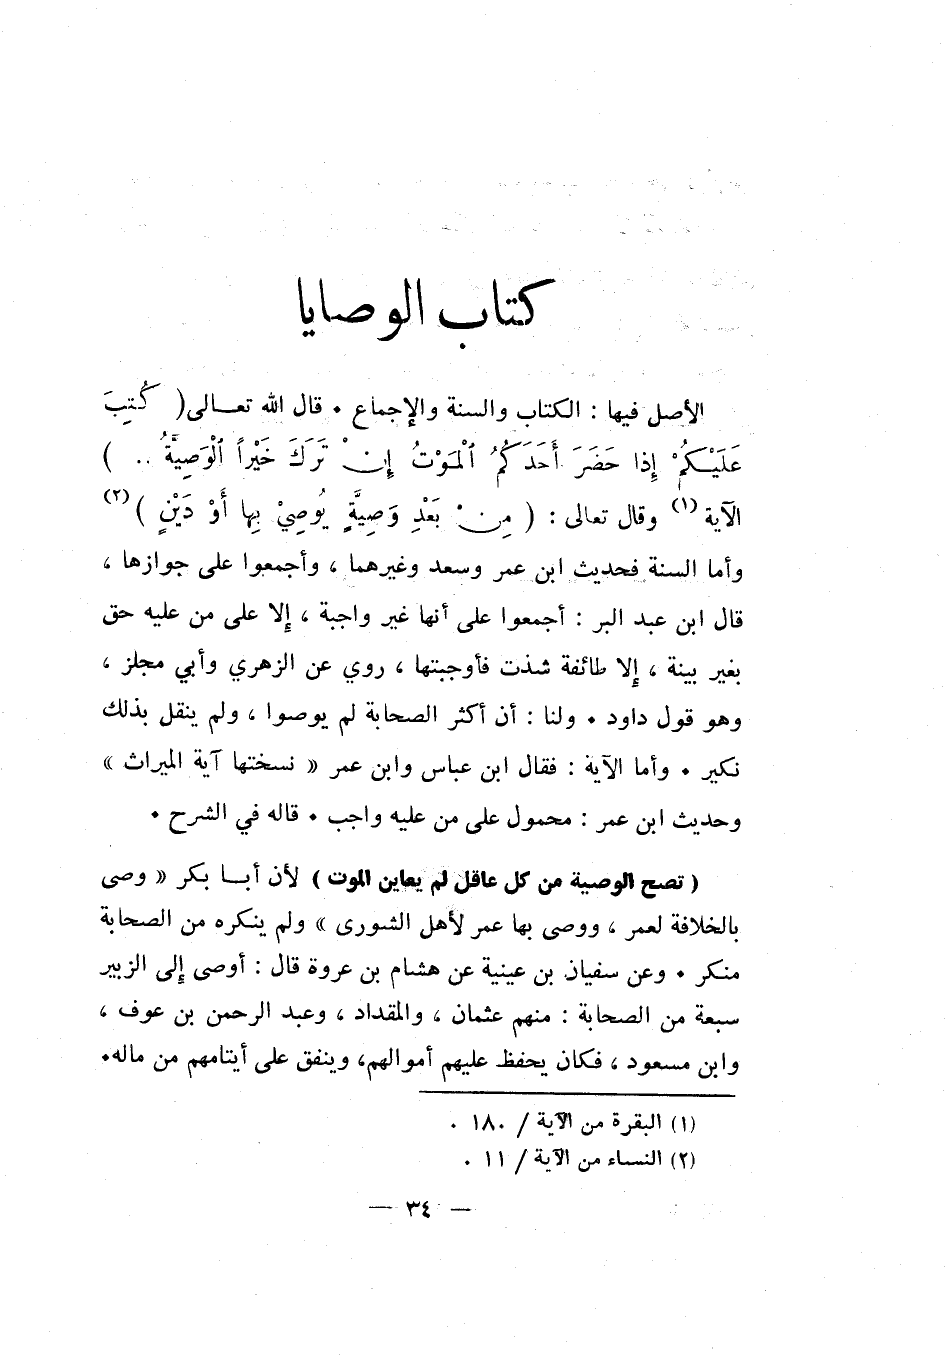 كتاب الوصايا
الأصل فيها : الكتاب والسنة والإجماع ٠ قال الله تعــالى ( كُتِبَ
عَلَيْكُمْ إِذا حَضَرَ أَحَدَكُمُ ٱلْمَوْتُ إِنْ تَرَكَ خَيْراً ٱلْوَصِيَّةُ .. )
الآية (١) وقال تعالى : ( مِنْ بَعْدِ وَصِيَّةٍ يُوصِيْ بِها أَوْ دَيْنٍ ) (٢)
وأما السنة فحديث ابن عمر وسعد وغيرهما ، وأجمعوا على جوازها ،
قال ابن عبد البر : أجمعوا على أنها غير واجبة ، إلا على من عليه حق
بغير بينة ، إلا طائفة شذت فأوجبتها ، روي عن الزهري وأبي مجلز ،
وهو قول داود ٠ ولنا : أن أكثر الصحابة لم يوصوا ، ولم ينقل بذلك
نكير ٠ وأما الآية : فقال ابن عباس وابن عمر « نسختها آية الميراث »
وحديث ابن عمر : محمول على من عليه واجب ٠ قاله في الشرح ٠
( تصح الوصية من كل عاقل لم يعاين الموت ) لأن أبــا بكر « وصى
بالخلافة لعمر ، ووصى بها عمر لأهل الشورى » ولم ينكره من الصحابة
منكر ٠ وعن سفيان بن عينية عن هشام بن عروة قال : أوصى إلى الزبير
سبعة من الصحابة : منهم عثمان ، والمقداد ، وعبد الرحمن بن عوف ،
وابن مسعود ، فكان يحفظ عليهم أموالهم، وينفق على أيتامهم من ماله٠
(١) البقرة من الآية / ١٨٠ .
(٢) النساء من الآية / ١١ .
— ٣٤ —